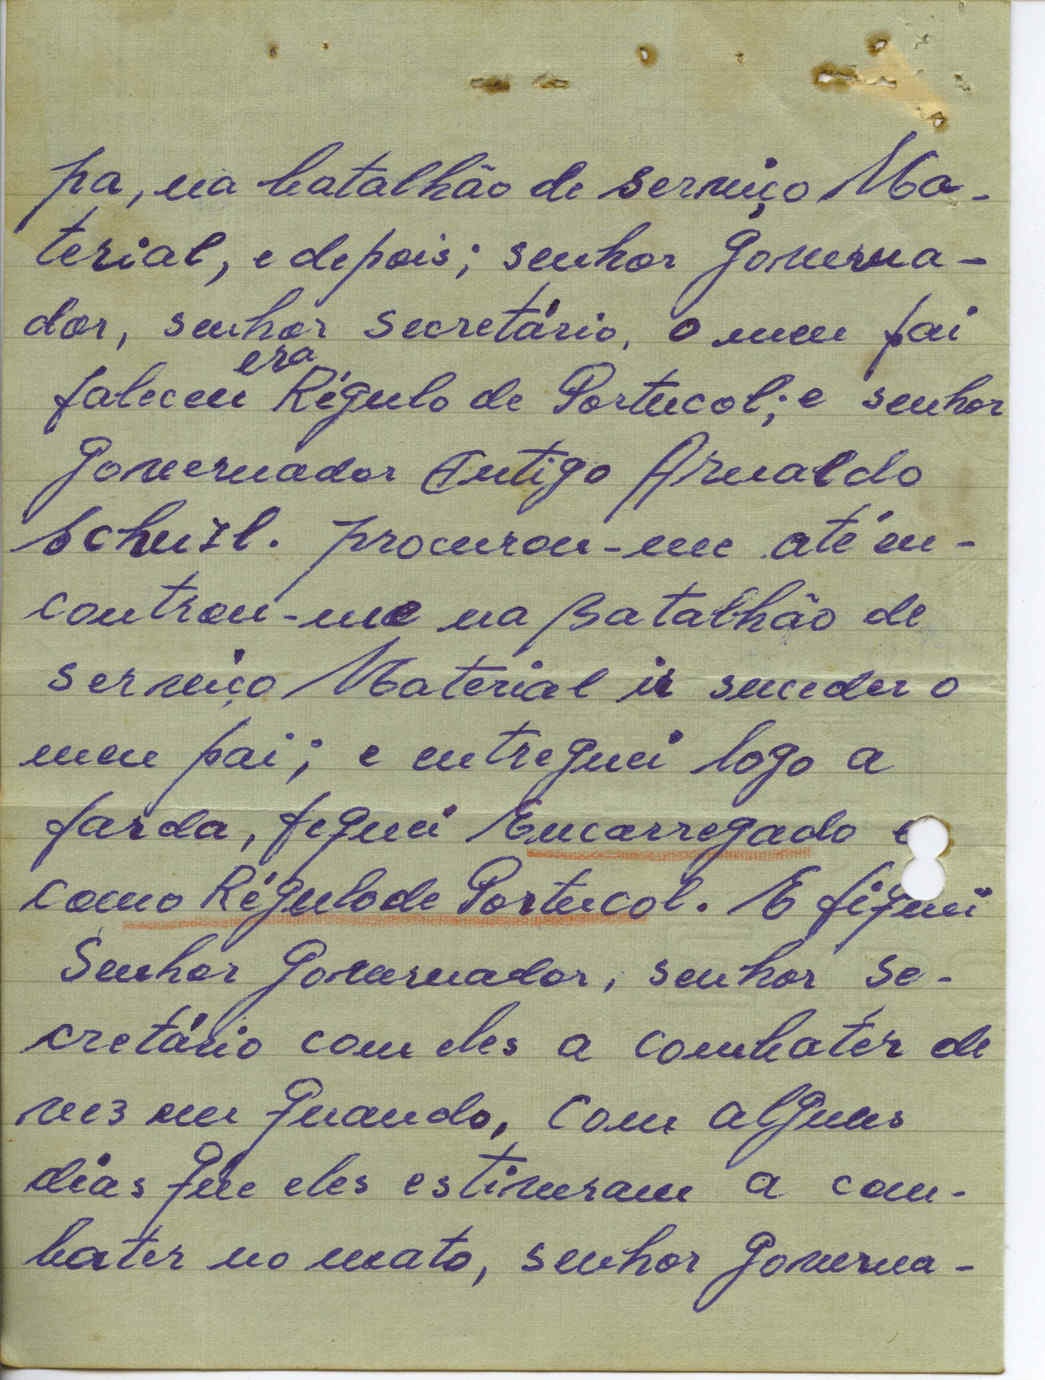 pa, na batalhão de serviço Ma-
terial, e depois; senhor Governa-
dor, senhor secretário, o meu pai
faleceu era Régulo de Portucol; e senhor
Governador Antigo Arnaldo
Schuzl. procurou-me até en-
controu-me na Batalhão de
serviço Material ir suceder o
meu pai; e entreguei logo a
farda, fiquei Encarregado e
como Régulo de Portucol. E fiquei
Senhor Governador, senhor Se-
cretário com eles a combater de
vez em quando, com alguns
dias que eles estiveram a com-
bater no mato, senhor Governa-